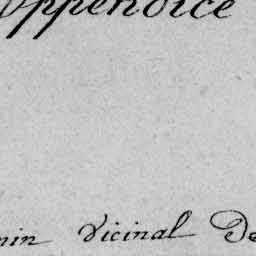 Appendice
min Vicinal De